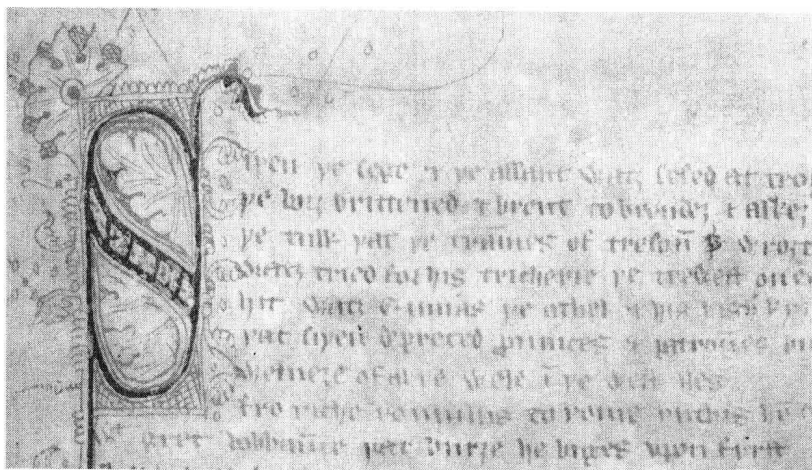 Siþen þe sege & þe assaut watz sesed at tro
þe borȝ brittened & brent to brondez & askez
þe tulk þat þe tram̄es of tresoū þ wroȝt
watz tried for his tricherie þe trewest on e
hit watz ennias þe athel & his highe k
þat siþen depreced prouinces & patroūes bi
welneȝe of al þe wele ī þe west iles
fro riche romulus to rome ricchis h
gret bobbaūce þat burȝe he biges vpon fyrst